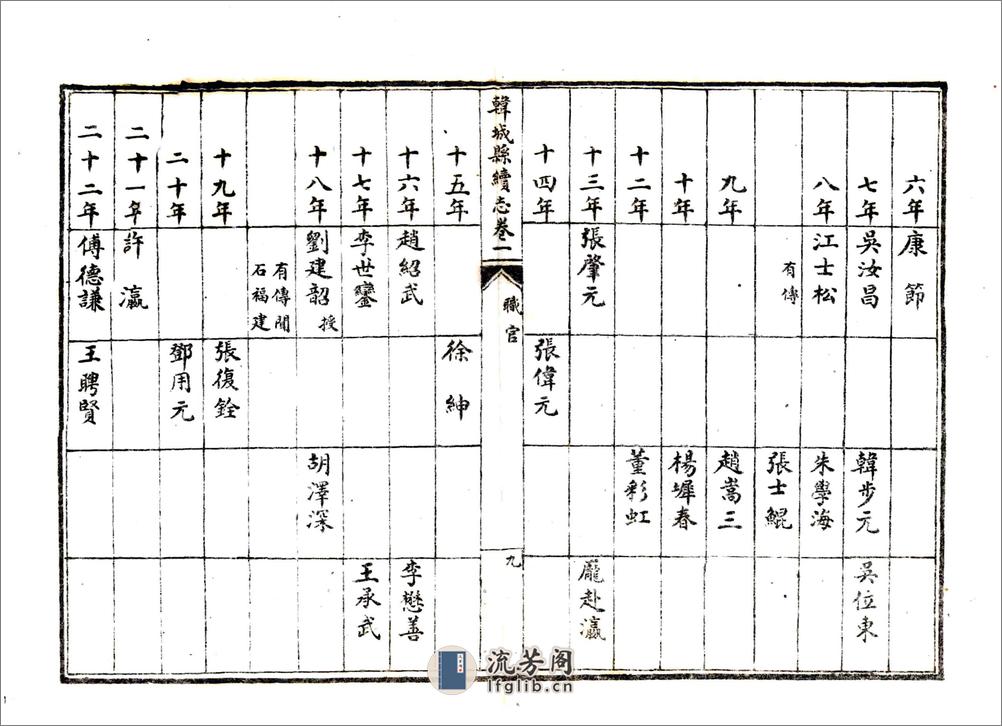 六年康節
七年吳汝昌 韓步元 吳位東
八年江士松 朱學海
有傳 張士鯤
九年 趙嵩三
十年 楊墀春
十二年 董彩虹
十三年張肇元 龐赴瀛
十四年 張偉元
韓城縣續志卷二 職官 九
十五年 徐紳
十六年趙紹武 李懋善
十七年李世鑾 王承武
十八年劉建韶授 胡澤深
有傳閒
石福建
十九年 張復銓
二十年 鄧用元
二十一年許瀛
二十二年傅德謙 王聘賢
流芳阁
lfglib.cn